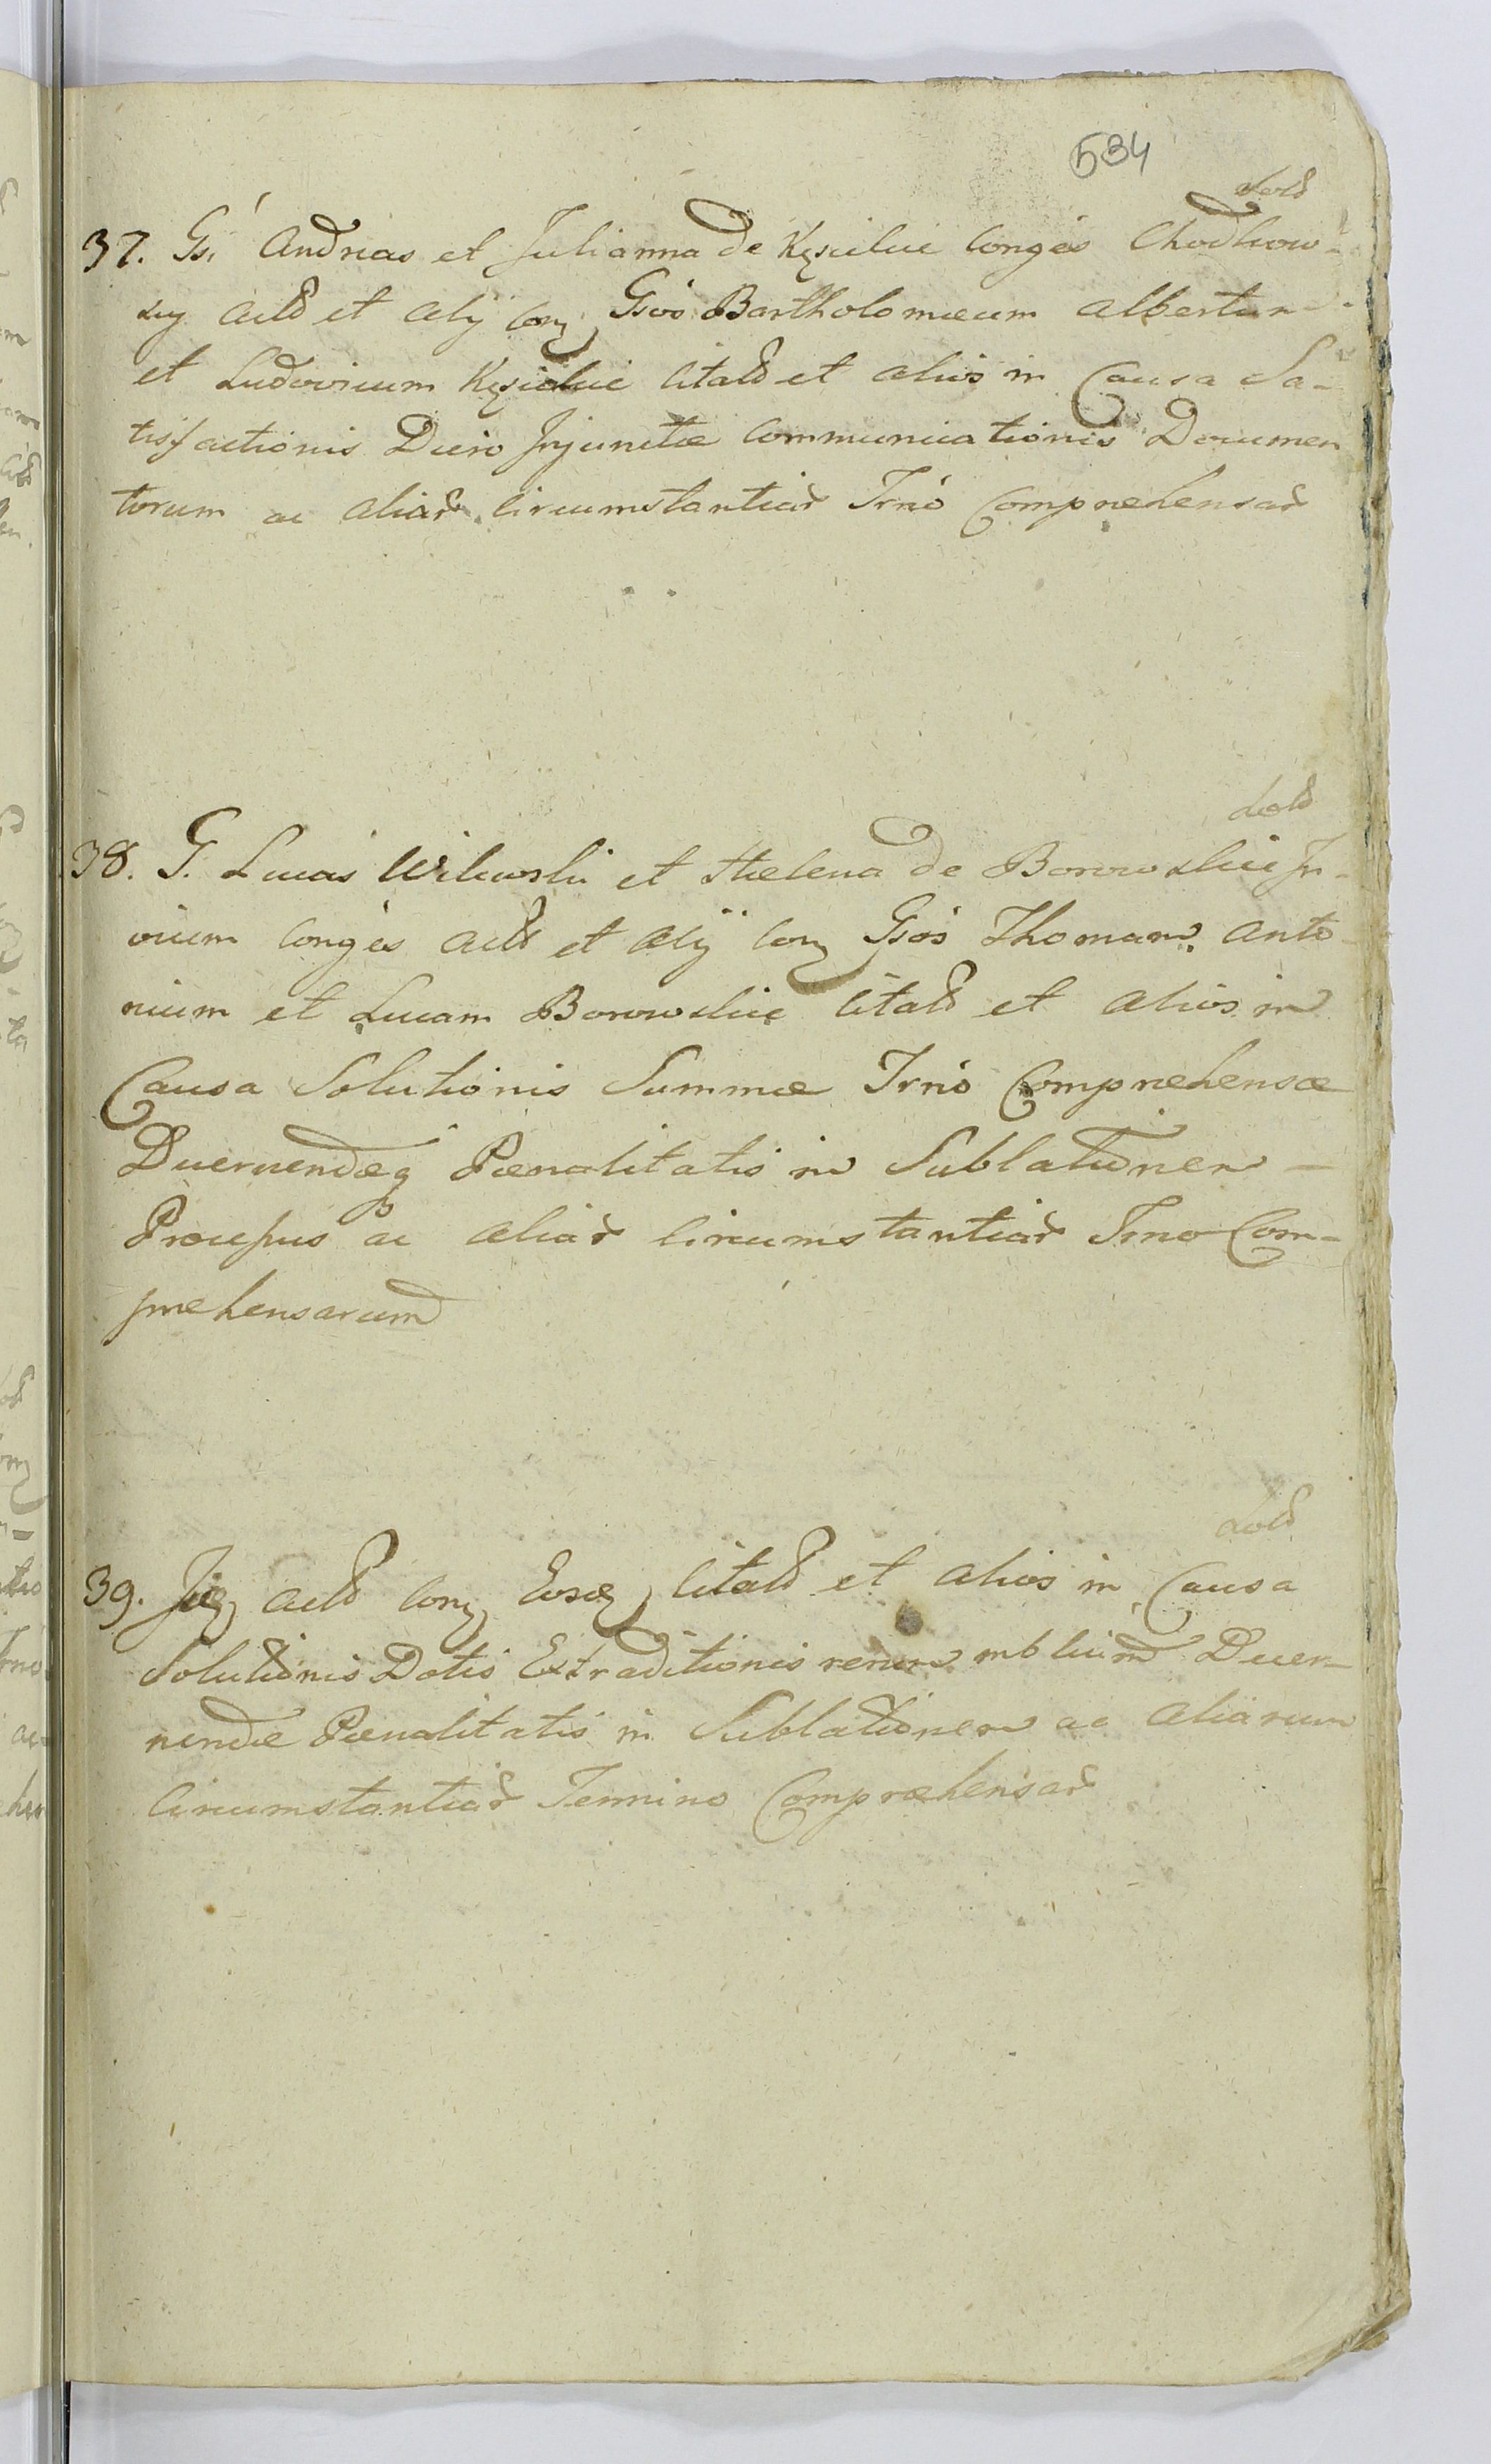 534
37. Gsi Andreas et Julianna de Kęsickie Conges Chodkow-
scy Acts et Alij Cony Gsos Bartholomæum Albertum
et Ludovicum Kęsickie Citats et alios in Causa Sa-
tisfactionis Dcero Injunctæ Communicationis Documen
torum ac aliar circumstantiar Trno Comprehensar
38. G. Lucas Wilewski et Helena de Borowskie In-
vicem Conges Acts et Alij Cony Gsos Thomam Anto-
nium et Lucam Borowskie Citats et alios in
Causa Solutionis Summæ Trno Comprehensæ
Dcernendæq Pœnalitatis in Sublationem –
Præcipue ac aliar Circumstantiar Trno Com-
prehensarum
39. Acts Cony Citats et alios in Causa
Solutionis Dotis Extraditionis rerum mblium Dcer-
nendæ Pœnalitatis in Sublationem ac aliarum
Circumstantiar Termino Comprehensar